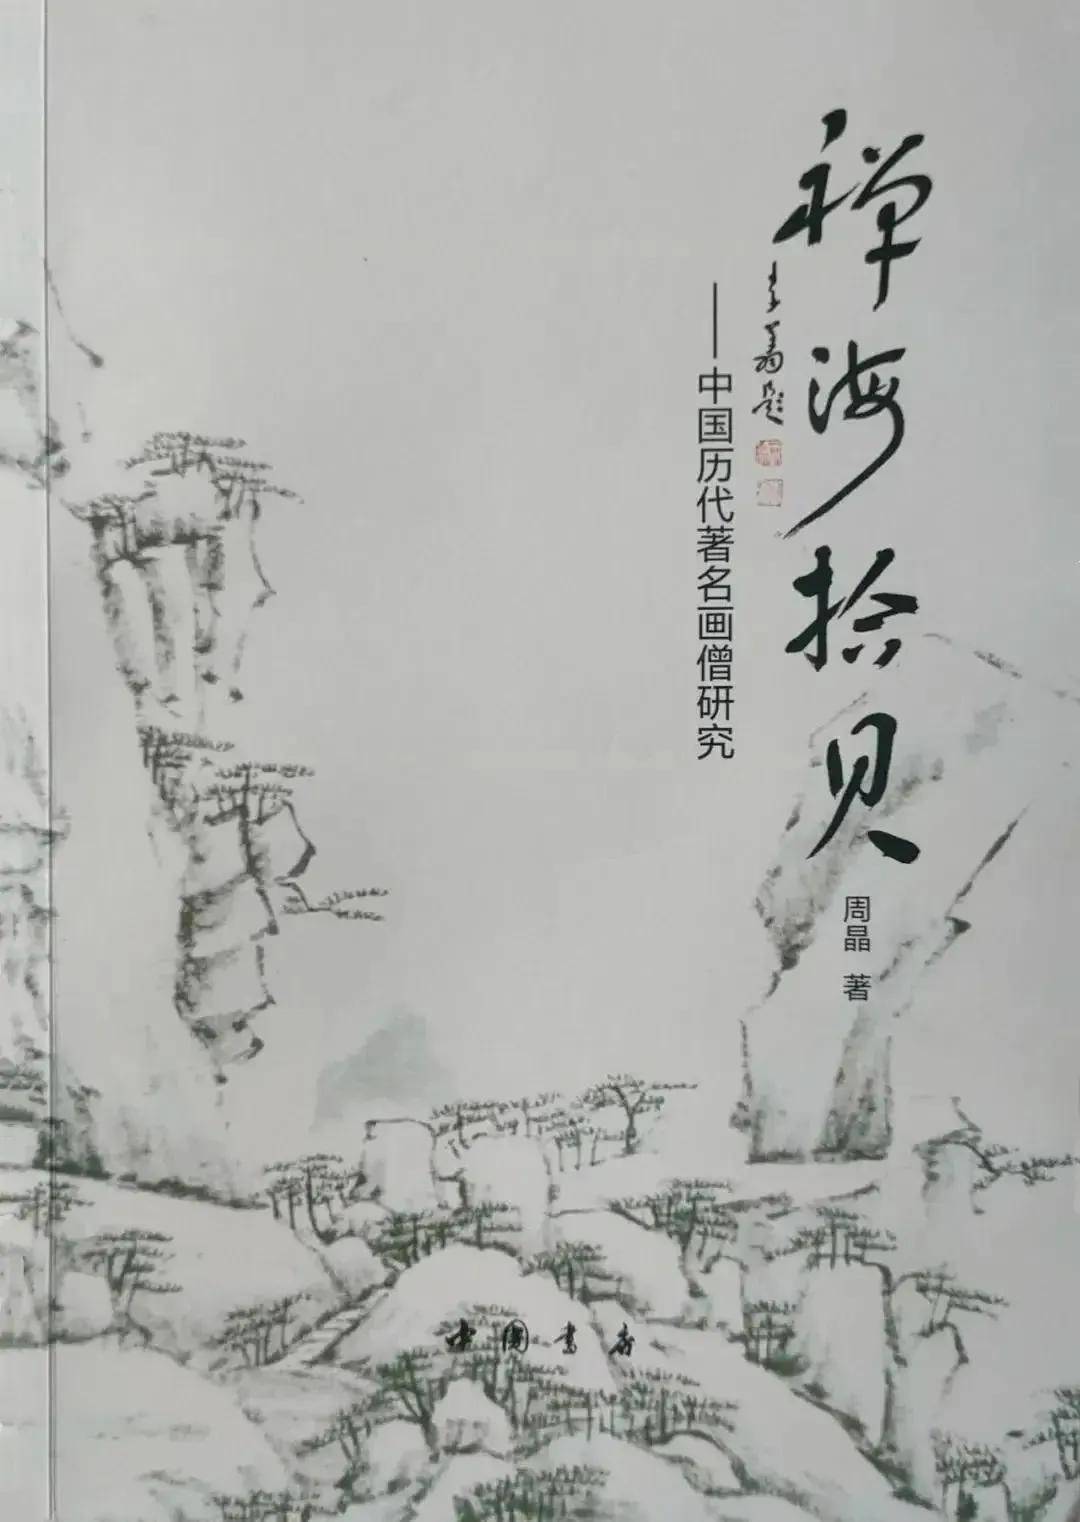 禅海拾贝
——中国历代著名画僧研究
周晶 著
中国书店